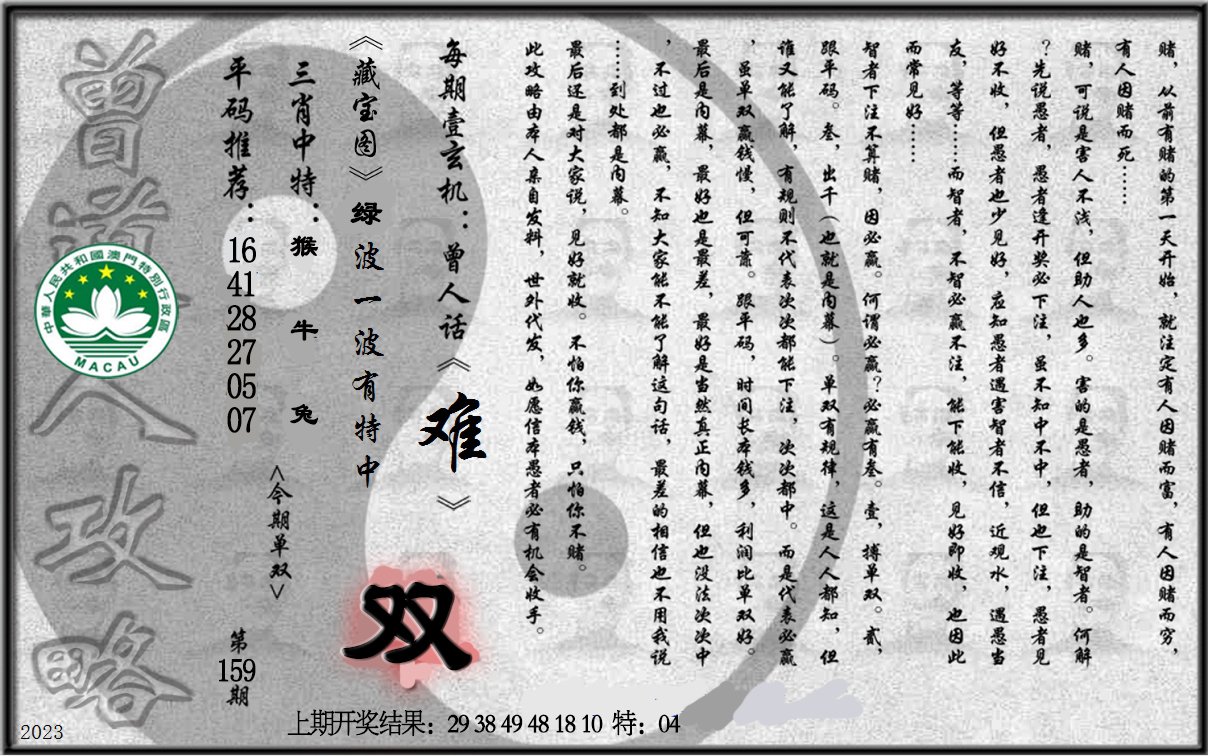 赌，从前有赌的第一天开始，就注定有人因赌而富，有人因赌而穷，
有人因赌而死……
赌，可说是害人不浅，但助人也多。害的是愚者，助的是智者。何解
？先说愚者，愚者逢开奖必下注，虽不知中不中，但也下注，愚者见
好不收，但愚者也少见好，应知愚者遇害智者不信，近观水，遇愚当
友，等等……而智者，不智必赢不注，能下能收，见好即收，也因此
而常见好……
智者下注不算赌，因必赢。何谓必赢？必赢有叁。壹，搏单双。贰，
跟平码。叁，出千（也就是内幕）。单双有规律，这是人人都知，但
谁又能了解，有规则不代表次次都能下注，次次都中。而是代表必赢
，虽单双赢钱慢，但可靠。跟平码，时间长本钱多，利润比单双好。
最后是内幕，最好也是最差，最好是当然真正内幕，但也没法次次中
，不过也必赢，不知大家能不能了解这句话，最差的相信也不用我说
……到处都是内幕。
最后还是对大家说，见好就收。不怕你赢钱，只怕你不赌。
此攻略由本人亲自发料，世外代发，如愿信本愚者必有机会收手。
每期壹玄机：曾人话《难》
《藏宝图》绿波一波有特中
双
三肖中特：猴 牛 兔
<今期单双>
平码推荐：16 41 28 27 05 07
第159期
曾道人攻略
中華人民共和國澳門特別行政區
MACAU
上期开奖结果：29 38 49 48 18 10 特：04
2023